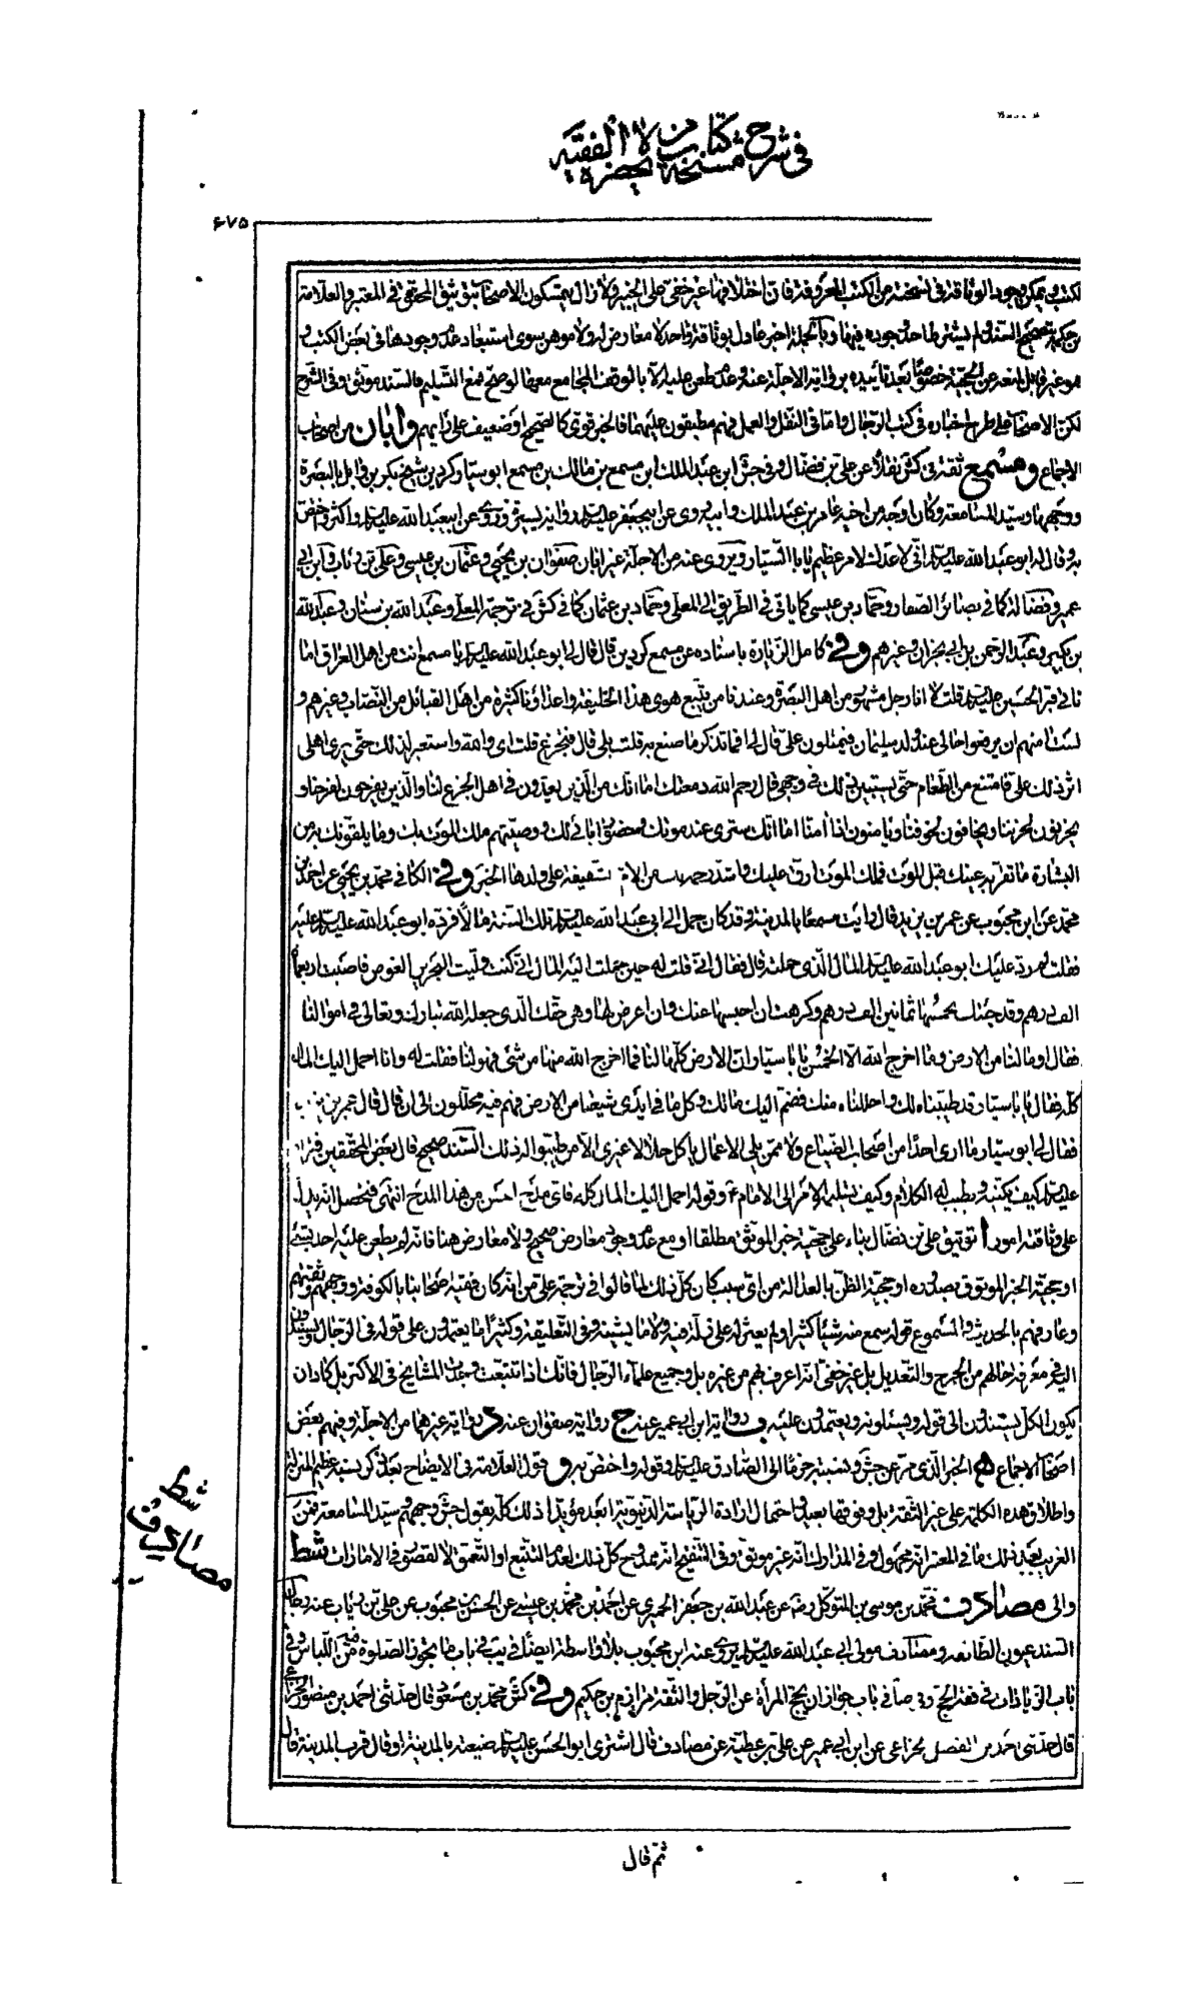 في شرح مشيخة كتاب من لا يحضره الفقيه
۶۷۵
لكتب ويمكن وجود الوثاقة في نسخته من الكتب المعروفة فان اختلافها غير خفي على الخبير ولا زال يتمسكون الاصحاب بتوثيق المحقق في المعتبر والعلامة
بتصحيح السند ولم يشترط احد وجوده فيها وبالجملة اخبر عادل بوثاقة واحد لا معارض له ولا موهن سوى استبعاد عدم وجودها في بعض الكتب و
هو غير قابل لمنعه عن الحجية خصوصا بعد تأييده برواية الاجلة عنه وعدم طعن عليه الا بالوقف المجامع معها لو صح فمع التسليم فالسند موثق وفي الشرح
لكن الاصحاب على طرح اخباره في كتب الرجال واما في النقل والعمل فهم مطبقون عليهما فالخبر قوي كالصحيح او ضعيف على رأيهم وابان من اصحاب
الاجماع ومسمع ثقة في كش نقلا عن علي بن فضال وفي جش ابن عبد الملك ابن مسمع بن مالك بن مسمع ابو سيار كردين شيخ بكر بن وائل بالبصرة
ووجهها وسيد المسامعة وكان اوجه من اخيه عامر بن عبد الملك وابيه روى عن ابي جعفر عليه السلام رواية يسيرة وروى عن ابي عبد الله عليه السلام واكثر واختص
به وقال له ابو عبد الله عليه السلام اني لاعدك لامر عظيم يا با السيار ويروى عنه من الاجلة غير ابان صفوان بن يحيى وعثمان بن عيسى وعلي بن رئاب وابن ابي
عمير وفضالة كما في بصائر الصفار وحماد بن عيسى كما ياتي في الطريق الى المعلى وحماد بن عثمان كما في كش في ترجمة المعلى وعبد الله بن سنان وعبد الله
بن بكير وعبد الرحمن بن ابي نجران وغيرهم وفي كامل الزيارة باسناده عن مسمع كردين قال قال لي ابو عبد الله عليه السلام يا مسمع انت من اهل العراق اما
تاتي قبر الحسين عليه السلام قلت لا انا رجل مشهور من اهل البصرة وعندنا من يتبع هوى هذا الخليفة واعداؤنا كثيرة من اهل القبائل من النصاب وغيرهم و
لست امنهم ان يرفعوا حالي عند ولد سليمان فيمثلون علي قال لي افما تذكر ما صنع به قلت بلى قال فتجزع قلت اي والله واستعبر لذلك حتى يرى اهلي
اثر ذلك علي فامتنع من الطعام حتى يستبين ذلك في وجهي قال رحم الله دمعتك اما انك من الذين يعدون في اهل الجزع لنا والذين يفرحون لفرحنا و
يحزنون لحزننا ويخافون لخوفنا ويامنون اذا امنا اما انك سترى عند موتك وحضور ابائي لك ووصيتهم ملك الموت بك وما يلقونك به من
البشارة ما تقر به عينك قبل الموت فملك الموت ارق عليك واشد رحمة من الام الشفيقة على ولدها الخبر وفي الكافي محمد بن يحيى عن احمد بن
محمد عن ابن محبوب عن عمر بن يزيد قال رايت مسمعا بالمدينة وقد كان حمل الى ابي عبد الله عليه السلام تلك السنة مالا فرده ابو عبد الله عليه السلام عليه
فقلت لم رد عليك ابو عبد الله عليه السلام المال الذي حملته قال فقال اني قلت له حين حملت اليه المال اني كنت وليت البحرين الغوص فاصبت اربعمائة
الف درهم وقد جئتك بخمسها ثمانين الف درهم وكرهت ان احبسها عنك وان اعرض لها وهي حقك الذي جعل الله تبارك وتعالى في اموالنا
فقال او ما لنا من الارض وما اخرج الله الا الخمس يا با سيار ان الارض كلها لنا فما اخرج الله منها من شئ فهو لنا فقلت له وانا احمل اليك المال
كله فقال يا با سيار قد طيبناه لك واحللناه منك فضم اليك مالك وكل ما في ايدي شيعتنا من الارض فهم فيه محللون الى ان قال قال عمر بن يزيد
فقال لي ابو سيار ما ارى احدا من اصحاب الضياع ولا ممن يلي الاعمال ياكل حلالا غيري الا من طيبوا له ذلك السند صحيح قال بعض المحققين
عليه السلام كيف يكنيه ويطيب له الكلام وكيف تسليم الامر الى الامام ع وقوله احمل اليك المال كله فاي مدح احسن من هذا المدح انتهى فتحصل انه يدل
على وثاقته امور ا توثيق علي بن فضال بناء على حجية خبر الموثق مطلقا او مع عدم وجود معارض صحيح ولا معارض هنا فانه لم يطعن عليه احد بشئ
او حجية الخبر الموثوق بصدوره او حجية الظن بالعدالة من اي سبب كان كل ذلك لما قالوا في ترجمة علي من انه كان فقيه اصحابنا بالكوفة ووجههم وثقتهم
وعارفهم بالحديث والمسموع قوله سمع منه شيئا كثيرا ولم يعثر له على زلة فيه ولا ما يشينه وفي التعليقة وكثيرا ما يعتمدون على قوله في الرجال ويستندون
اليه في معرفة حالهم من الجرح والتعديل بل غير خفي انه اعرف بهم من غيره بل وجميع علماء الرجال فانك اذا تتبعت وجدت المشايخ في الاكثر بل كاد ان
يكون الكل يستندون الى قوله ويسئلونه ويعتمدون عليه ب رواية ابن ابي عمير عنه ج رواية صفوان عنه د رواية غيرهما من الاجلة وفيهم بعض
اصحاب الاجماع ه الخبر الذي مر عن جش ونسبته جزما الى الصادق عليه السلام وقوله واختص به و قول العلامة في الايضاح بعد ذكر نسبه عظيم المنزلة
واطلاق هذه الكلمة على غير الثقة بل وفوقها بعيد واحتمال ارادة الرياسة الدنيوية ابعد مؤيدا ذلك كله بقول جش وجههم وسيد المسامعة فمن
الغريب بعد ذلك ما في المعتبر انه مجهول وفي المدارك انه غير موثق وفي التنقيح انه ممدوح كل ذلك لعدم التتبع او التعمق لا لقصور في الامارات شط
والى مصادف محمد بن موسى بن المتوكل رضه عن عبد الله بن جعفر الحميري عن احمد بن محمد بن عيسى عن الحسن بن محبوب عن علي بن رئاب عنه رجال
السند عيون الطائفة ومصادف مولى ابي عبد الله عليه السلام يروى عنه ابن محبوب بلا واسطة ايضا في يب في باب ما يجوز الصلوة فيه من اللباس وفي
باب الزيادات في فقه الحج وفي صا في باب جواز ان يحج المرأة عن الرجل والثقة مرازم بن حكيم وفي كش محمد بن مسعود قال حدثني احمد بن منصور الخزاعي
قال حدثني احمد بن الفضل الخزاعي عن ابن ابي عمير عن علي بن عطية عن مصادف قال اشترى ابو الحسن عليه السلام ضيعة بالمدينة او قال قرب المدينة قال
شط
مصادف
ثم قال